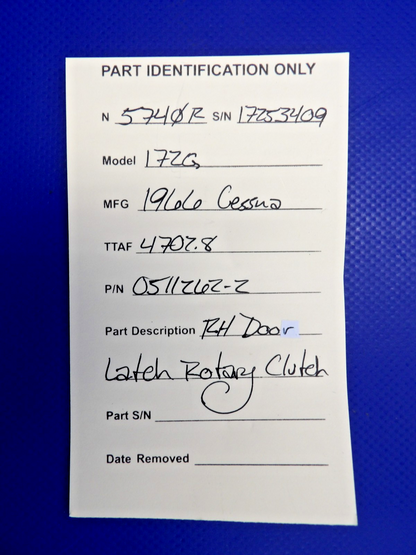 PART IDENTIFICATION ONLY
N 574ØR S/N 17253409
Model 172G
MFG 1966 Cessna
TTAF 4702.8
P/N 0511262-2
Part Description RH Door
Latch Rotary Clutch
Part S/N
Date Removed